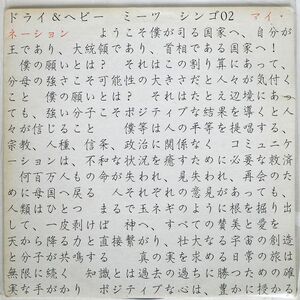 ドライ＆ヘビー　ミーツ　シンゴ02　マイ・
ネーション　ようこそ僕が司る国家へ、自分が
王であり、大統領であり、首相である国家へ！
僕の願いとは？　それはこの割り算にあって、
分母の強さこそ可能性の大きさだと人々が気付く
こと　僕の願いとは？　それはたとえ辺境にあっ
ても、強い分子こそポジティブな結果を導くと人
々が信じること　僕等は人の平等を提唱する、
宗教、人種、信条、政治に関係なく　コミュニケ
ーションは、不和な状況を癒すために必要な救済
何百万人もの命が失われ、見失われ、再会のた
めに母国へ戻る　人それぞれの意見があっても、
人類はひとつ　まるで玉ネギのように根を掘り出
して、一皮剥けば　神へ、すべての賛美と愛を
天から降る力と直接繋がり、壮大なる宇宙の創造
と分子が共鳴する　真の実を求める日常の旅は
無限に続く　知識とは過去の過ちに勝つための確
実な手がかり　ポジティブな心は、豊かに授かる